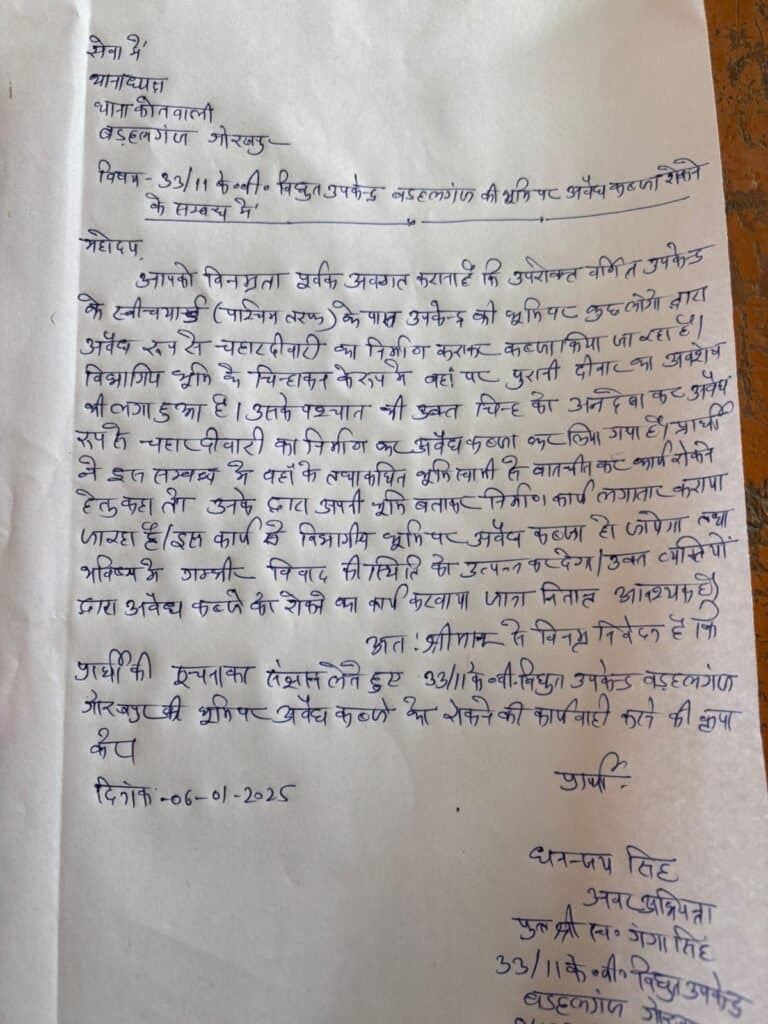 सेवा में
थानाध्यक्ष
थाना कोतवाली
बड़हलगंज गोरखपुर
विषय - 33/11 के०वी० विद्युत उपकेन्द्र बड़हलगंज की भूमि पर अवैध कब्जा रोकने
के सम्बन्ध में
महोदय,
आपको विनम्रता पूर्वक अवगत कराना है कि उपरोक्त वर्णित उपकेन्द्र
के स्वीचयार्ड (पश्चिम तरफ) के पास उपकेन्द्र की भूमि पर कुछ लोगो द्वारा
अवैध रूप से चहारदीवारी का निर्माण कराकर कब्जा किया जा रहा है।
विभागिय भूमि के चिन्हाकन के रूप में वहां पर पुरानी दीवार का अवशेष
भी लगा हुआ है। उसके पश्चात भी उक्त चिन्ह को अनदेखा कर अवैध
रूप से चहारदीवारी का निर्माण कर अवैध कब्जा कर लिया गया है। प्रार्थी
ने इस सम्बन्ध में वहाँ के तथाकथित भूमि स्वामी से बातचीत कर कार्य रोकने
हेतु कहा तो उनके द्वारा अपनी भूमि बताकर निर्माण कार्य लगातार कराया
जा रहा है। इस कार्य से विभागीय भूमि पर अवैध कब्जा हो जायेगा तथा
भविष्य में गम्भीर विवाद की स्थिति को उत्पन्न कर देगा। उक्त व्यक्तियों
द्वारा अवैध कब्जे को रोकने का कार्य करवाया जाना नितान्त आवश्यक है।
अतः श्रीमान से विनम्र निवेदन है कि
प्रार्थी की सूचना का संज्ञान लेते हुए 33/11 के०वी० विद्युत उपकेन्द्र बड़हलगंज
गोरखपुर की भूमि पर अवैध कब्जे को रोकने की कार्यवाही करने की कृपा
करें
दिनांक -06-01-2025
प्रार्थी -
धनन्जय सिंह
अवर अभियन्ता
पुत्र श्री स्व० गंगा सिंह
33/11 के०वी० विद्युत उपकेन्द्र
बड़हलगंज